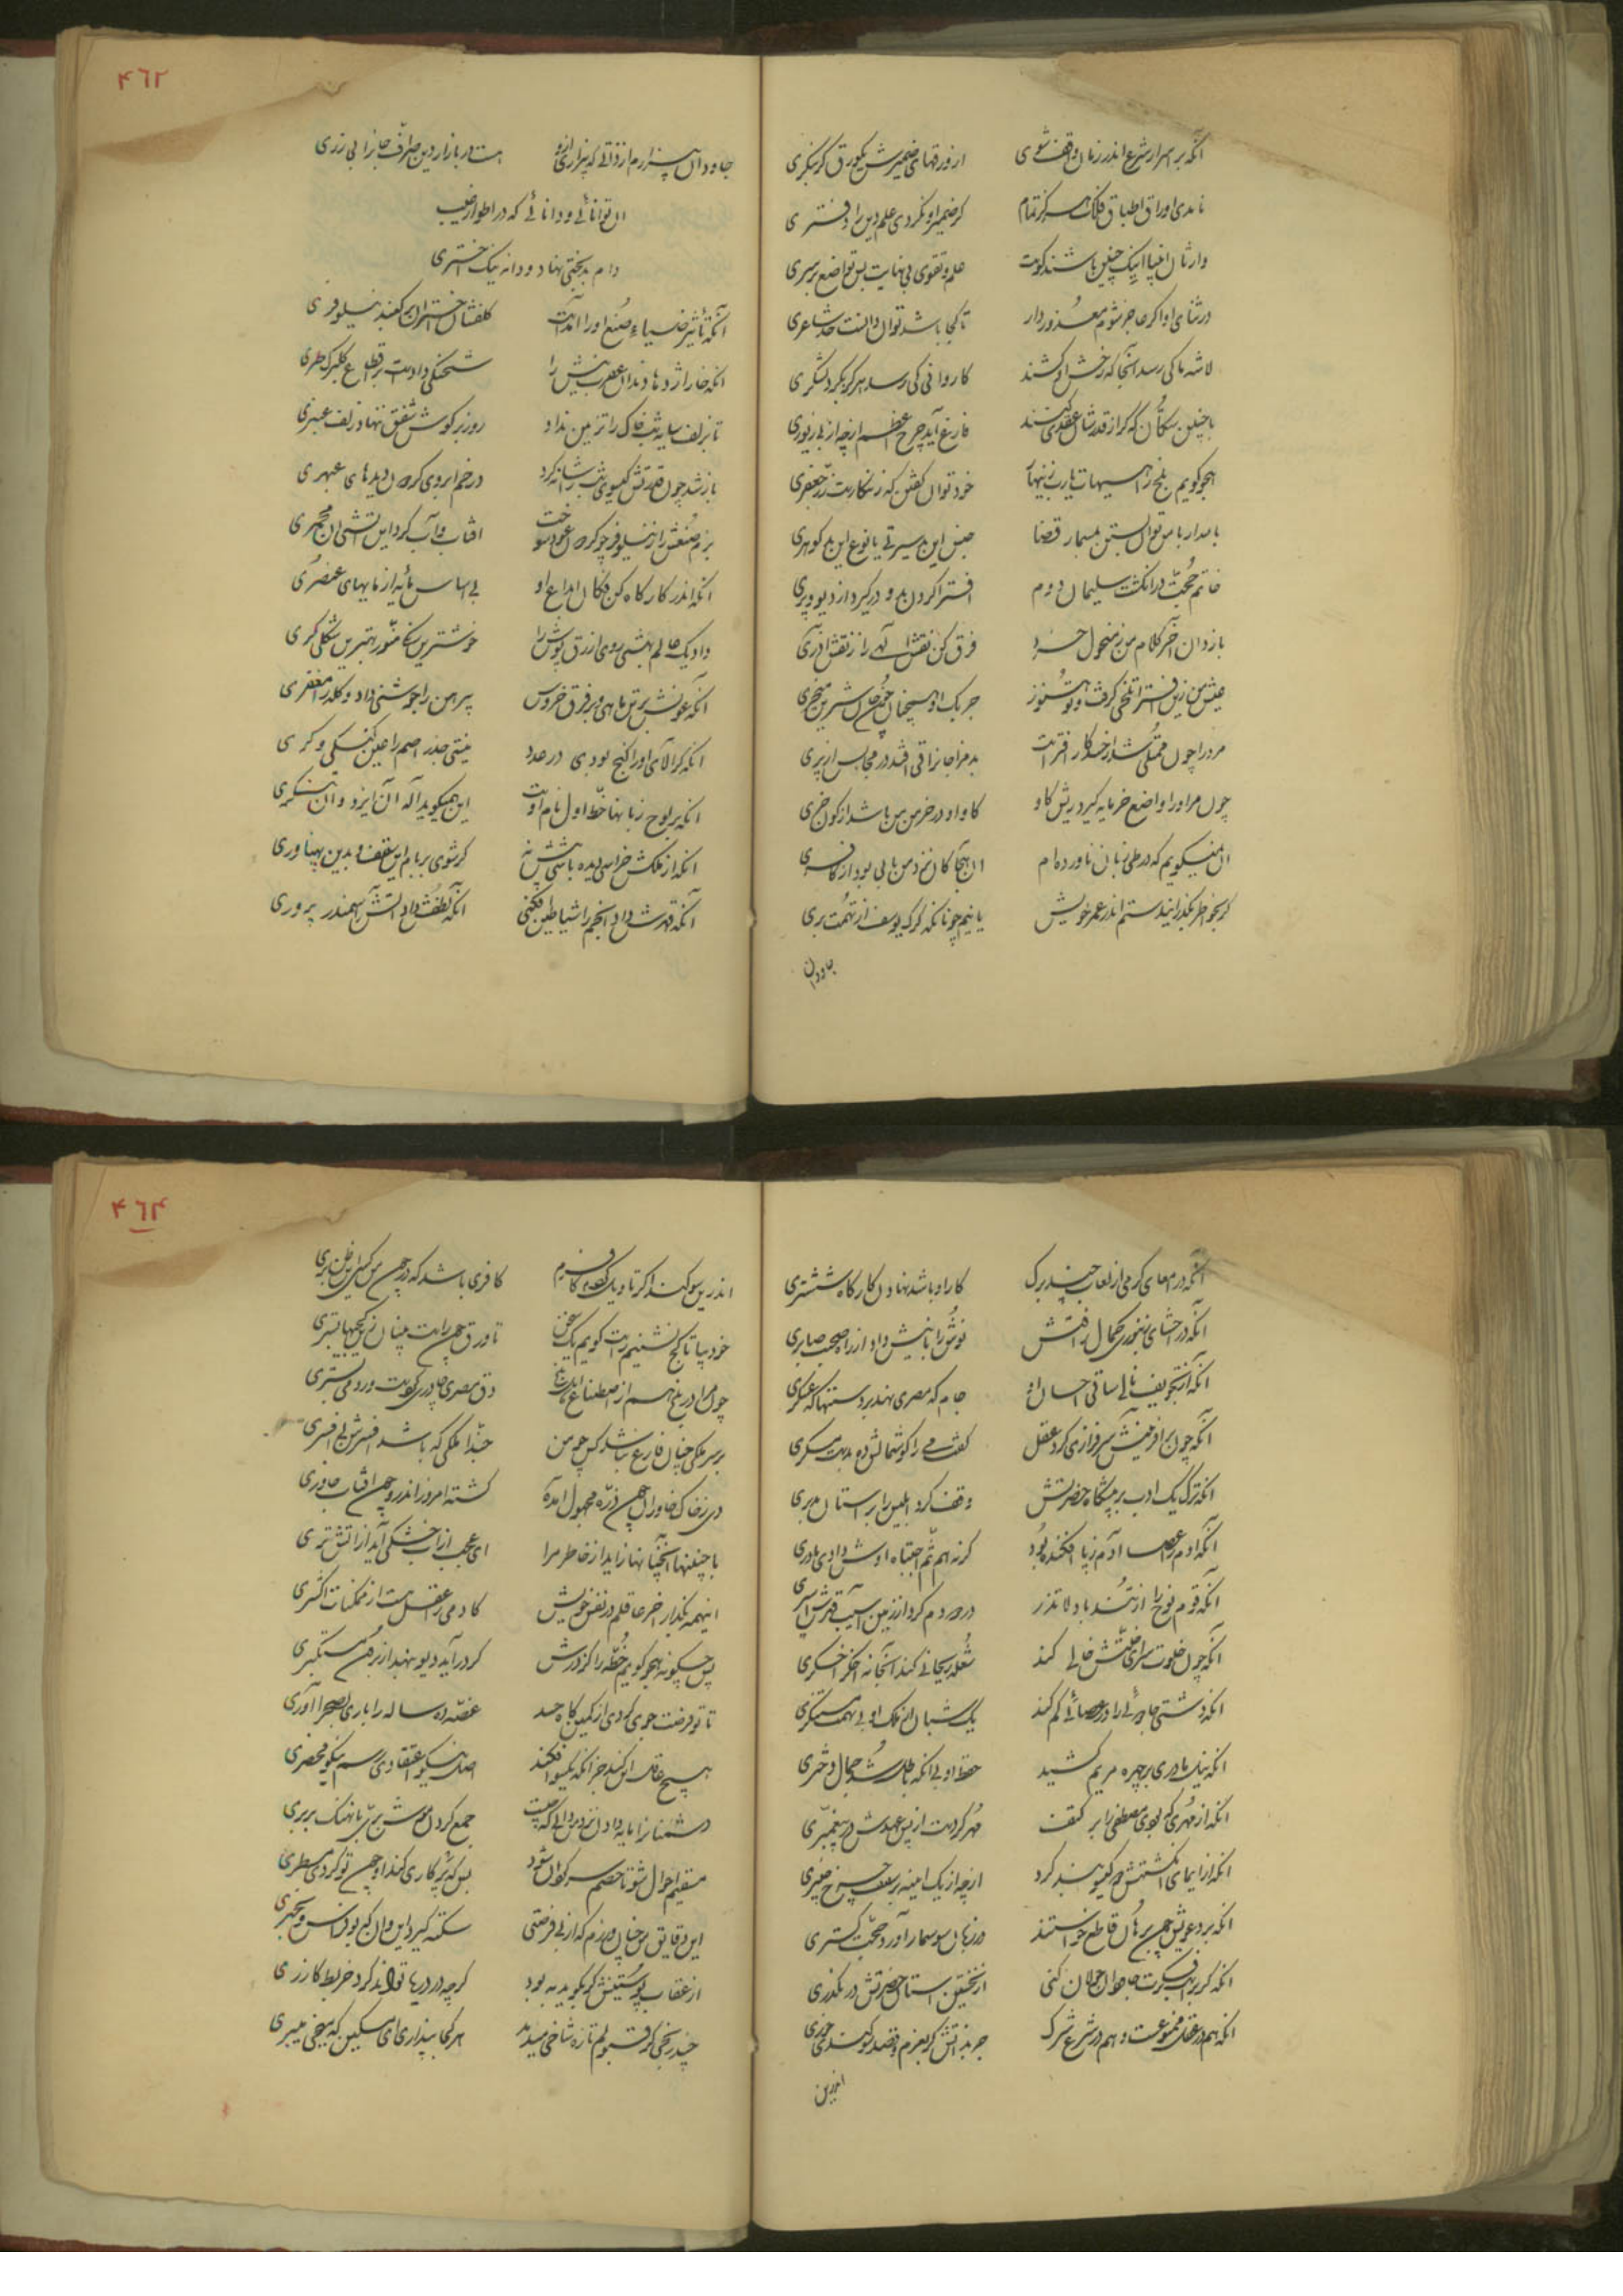 آنکه بر اسرار شرع اندر زمان واقف شوی از ورقهای ضمیرش یکورق گر بنگری
نامدی اوراق اطباق فلک هرگز تمام گر ضمیر او نکردی علم دین را دفتری
وارثان انبیا اینک چنین باشند کوست علم و تقوی بی نهایت پس تواضع بر سری
در ثنای او اگر عاجز شوم معذور دار تا کجا باشد توان دانست حد شاعری
لاشه ما کی رسد آنجا که رخش او کشند کاروانی کی رسد هرگز بگرد لشکری
با چنین سکان که گر از قدرشان عقدی کنند فارغ آید چرخ اعظم از چه از بی زیوری
هجو گویم بلخ را هیهات یا رب زینهار خود توان گفتن که زنگارست زر جعفری
بامدار باس توان بستن بمسمار قضا جنس این بد سیرتی یا نوع این بد گوهری
خاتم حجت در انگشت سلیمان دوم افترا کردن بدو در گیرد از دیو و پری
باز دان آخر کلام من ز منحول حسود فرق کن نقش الهی را ز نقش آذری
عیش من زین افترا تلخی گرفت و تو هنوز
مرد را چون ممتلی شد از حسد کار افتراست بد مزاجانرا قی افتد در مجالس از پری
چون مرا او را واضع خر مایه گیرد ریش گاو گاو او در خرمن من باشد از کون خری
آن نمیگویم که در طی زبان ناورده ام آن هجا کان نزد من بابی بود از کافری
گر بخواطر بگذرانیدستم اندر عمر خویش یا نیم چونانکه گرگ یوسف از تهمت بری
جاودان
۴۶۲
جاودان بیزارم از ذاتی که بیزاری ازو هست در بازار دین صراف جانرا بی زری
آن توانائی و دانائی که در اطوار غیب
دام بدبختی نهاد و دانه نیک اختری
آنکه تأثیر ضیاء صنع او را آمدست گلفشان اختران بر گنبد نیلوفری
آنکه خار اژدها دندان عقرب نیش را شحنگی دادست بر اقطاع گلبرگ طری
تا بزلف سایه شب خاک را تزیین نداد روز بر گوش شفق ننهاد زلف عنبری
باز شد چون قدرتش گیسوی شب را شانه کرد در خم ابروی گردون دیدهای عبهری
بزم صنعش را ز نیلوفر چو گردون عود سوخت آفتاب و آب کرد این آتشی آن مجمری
آنکه اندر کارگاه کن فکان ابداع او بی اساس مایه از مایهای عنصری
داد یک عالم بهشتی روی ازرق پوش را خوشترین رنگی منور بهترین شکلی کری
آنکه عونش بر تن ماهی و بر فرق خروس پیرهن را جوشنی داد و کله را مغفری
آنکه گر آلای او را گنج بودی در عدد نیستی جذر اصم را عیب گنگی و کری
آنکه بر لوح زبانها خط اول نام اوست این همیگوید آله آن ایزد و آن تنگری
آنکه از ملکش خراسی دیده باشی بیش نه گر شوی بر بام این سقف بدین پهناوری
آنکه قهرش داد انجم را شیاطین افکنی آنکه لطفش داد آتش را سمندر پروری
آنکه در امعای کرمی از لعاب چند برگ کار او باشد نهادن کارگاه ششتری
آنکه در احشای زنبوری کمال رافتش نوش را با نیش داد از راه صحبت صابری
آنکه از تجویف نالی ساقی احسان او جام که مصری نهد بر دستها گه عسکری
آنکه چون بر آفرینش سرفرازی کرد عقل گفت می را گوشمالش ده بدست مسکری
آنکه ترک یک ادب بر پیشگاه حضرتش وقف کرد ابلیس را بر آستان مدبری
آنکه آدم را عصی آدم ز پا افکنده بود گر نه هم ثم اجتباه اوش دادی یاوری
آنکه قوم نوح را از تندباد لا تذر در دو دم کرد از زمین آسیب قهرش اسپری
آنکه چون خلوت سرای خلتش خالی کند شعله ریحانی کند آنجا نه اخگر اخگری
آنکه در شستی جادوئی را در عصائی گم کند یک شبان از ملک او بی تهمت مستنکری
آنکه نیل مادری بر چهره مریم کشید حفظ او بی آنکه باطل شد جمال دختری
آنکه از مهری که بودی مصطفی را بر کتف مهر کردست از پس عهدش در پیغمبری
آنکه از ایمای انگشتش دو گیسو بند کرد از چه از یک آینه بر سقف چرخ چنبری
آنکه بر دعویش چون برهان قاطع خواستند در زبان سوسمار آورد حجت گستری
آنکه گر بر آب فکرت جاودان جولان کنی از نخستین آستان حضرتش در نگذری
آنکه هم در عقل ممنوعست و هم در شرع شرک جز بذاتش گر بعزم و قصد سوگندی خوری
اندرین
۴۶۳
اندرین سوگند اگر تاویل کردم کافرم کافری باشد که در چون من کس این ظن بری
خود بیا تا کج نشینم راست گویم یک سخن تا ورق چون راست بینان زین کجیها بستری
چون مرا در بلخ هم از اصطناع اهل بلخ دق مصری چادری کردست و رومی بستری
بر سر ملکی چنان فارغ نباشد کس چو من حبذا ملکی که باشد افسرش بی افسری
دی ز خاک خاوران چون ذره مجهول آمده گشته امروز اندرو چون آفتاب خاوری
با چنینها آنچنانها زاید از خاطر مرا ای عجب از آب خشکی آید از آتش تری
اینهمه بگذار آخر عاقلم در نفس خویش کادمی را عقل هست از ممکنات اکثری
پس چگونه هجو گویم خطه را کز درش گر در آید دیو بنهد از برون مستکبری
تا تو فرصت جوی گردی از کمین گاه حسد غصه ده ساله را باری بصحرا آوری
هیچ عاقل این کند جز آنکه یکسو افکند اصل نیکو اعتقادی رسم نیکو محضری
دشمنانرا مایه دادن نزد من دانی که چیست جمع کردن موش دشتی با پلنگ بربری
مستقیم احوال شو تا خصم سرگردان شود بس که پرگاری کند او چون تو کردی مسطری
این دقایق من چنان ورزم که از بی فرصتی سکته گیرد این و آن گر بوفراس و بحتری
از عقاب پوستینش گر بگوید به بود گرچه در دریا تواند کرد خربط گازری
چند رنجی کز قبولم تازه شاخی میدمد هر کجا پنداری ای مسکین که بیخی میبری